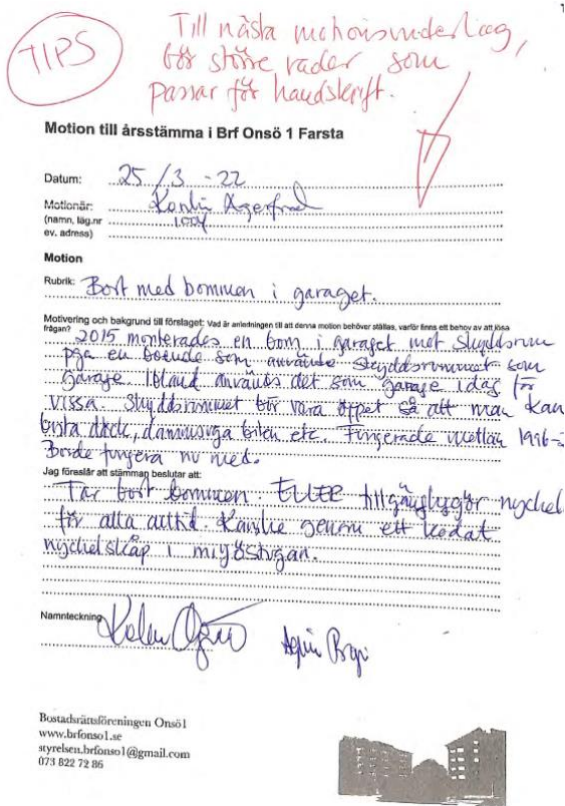 TIPS
Till nästa motionsunderlag,
bör större rader som
passar för handskrift.
Motion till årsstämma i Brf Onsö 1 Farsta
Datum: 25/3 -22
Motionär:
(namn, läg.nr 1004
ev. adress)
Motion
Rubrik: Bort med bommen i garaget.
Motivering och bakgrund till förslaget: Vad är anledningen till att denna motion behöver ställas, varför finns ett behov av att lösa
frågan? 2015 monterades en bom i garaget mot skyddsrum
pga en boende som använde skyddsrummet som
garage. Ibland används det som garage idag för
vissa. Skyddsrummet bör vara öppet så att man kan
byta däck, dammsuga bilen etc. Fungerade mellan 1996-2
Borde fungera nu med.
Jag föreslår att stämman beslutar att:
Tar bort bommen. ELLER tillgängliggör nyckel
för alla alltid. Kanske genom ett kodat
nyckelskåp i miljöstugan.
Namnteckning
Bostadsrättsföreningen Onsö1
www.brfonso1.se
styrelsen.brfonso1@gmail.com
073 822 72 86